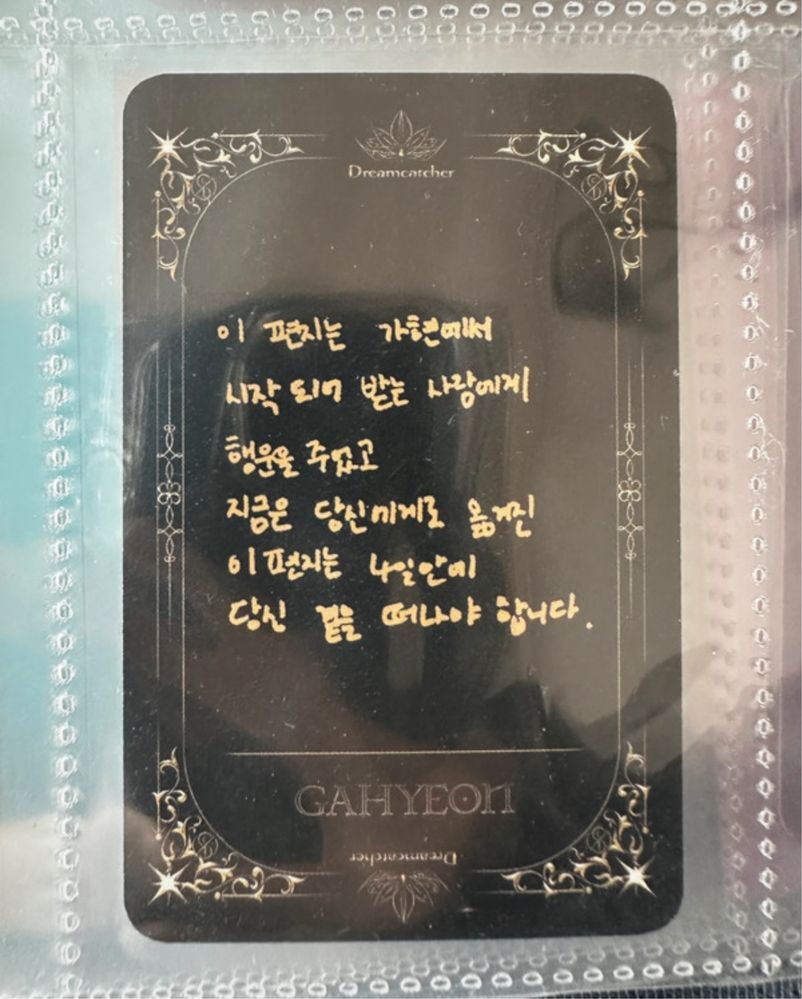 Dreamcatcher
이 편지는 가현에서
시작 되어 받는 사람에게
행운을 주었고
지금은 당신에게로 옮겨진
이 편지는 4일안에
당신 곁을 떠나야 합니다.
GAHYEON
Dreamcatcher